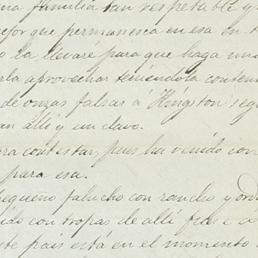 una familia tan respetable y
mejor que permanezca en esa en
lo llevaré para que haga una
aprovechar teniendola
de onzas falsas á Kingston seg
an allí y un clavo.
ra contestar, pues ha venido con
para esa.
pequeño falucho con rancho y
do con tropas de allí
este pais está en el momento